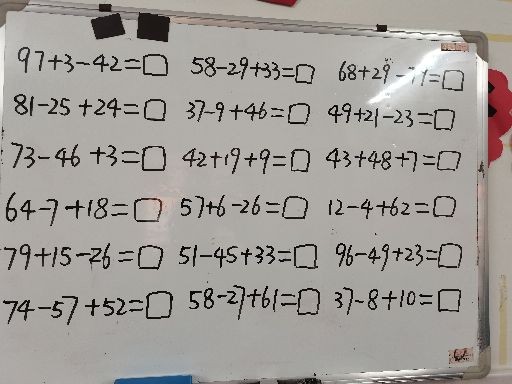 97+3-42=□ 58-29+33=□ 68+29-77=□
81-25+24=□ 37-9+46=□ 49+21-23=□
73-46+3=□ 42+19+9=□ 43+48+7=□
64-7+18=□ 57+6-26=□ 12-4+62=□
79+15-26=□ 51-45+33=□ 96-49+23=□
74-57+52=□ 58-27+61=□ 37-8+10=□